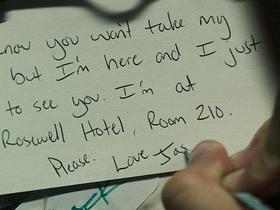 know you won't take my
but I'm here and I just
to see you. I'm at
Roswell Hotel, Room 210.
Please. Love Jas